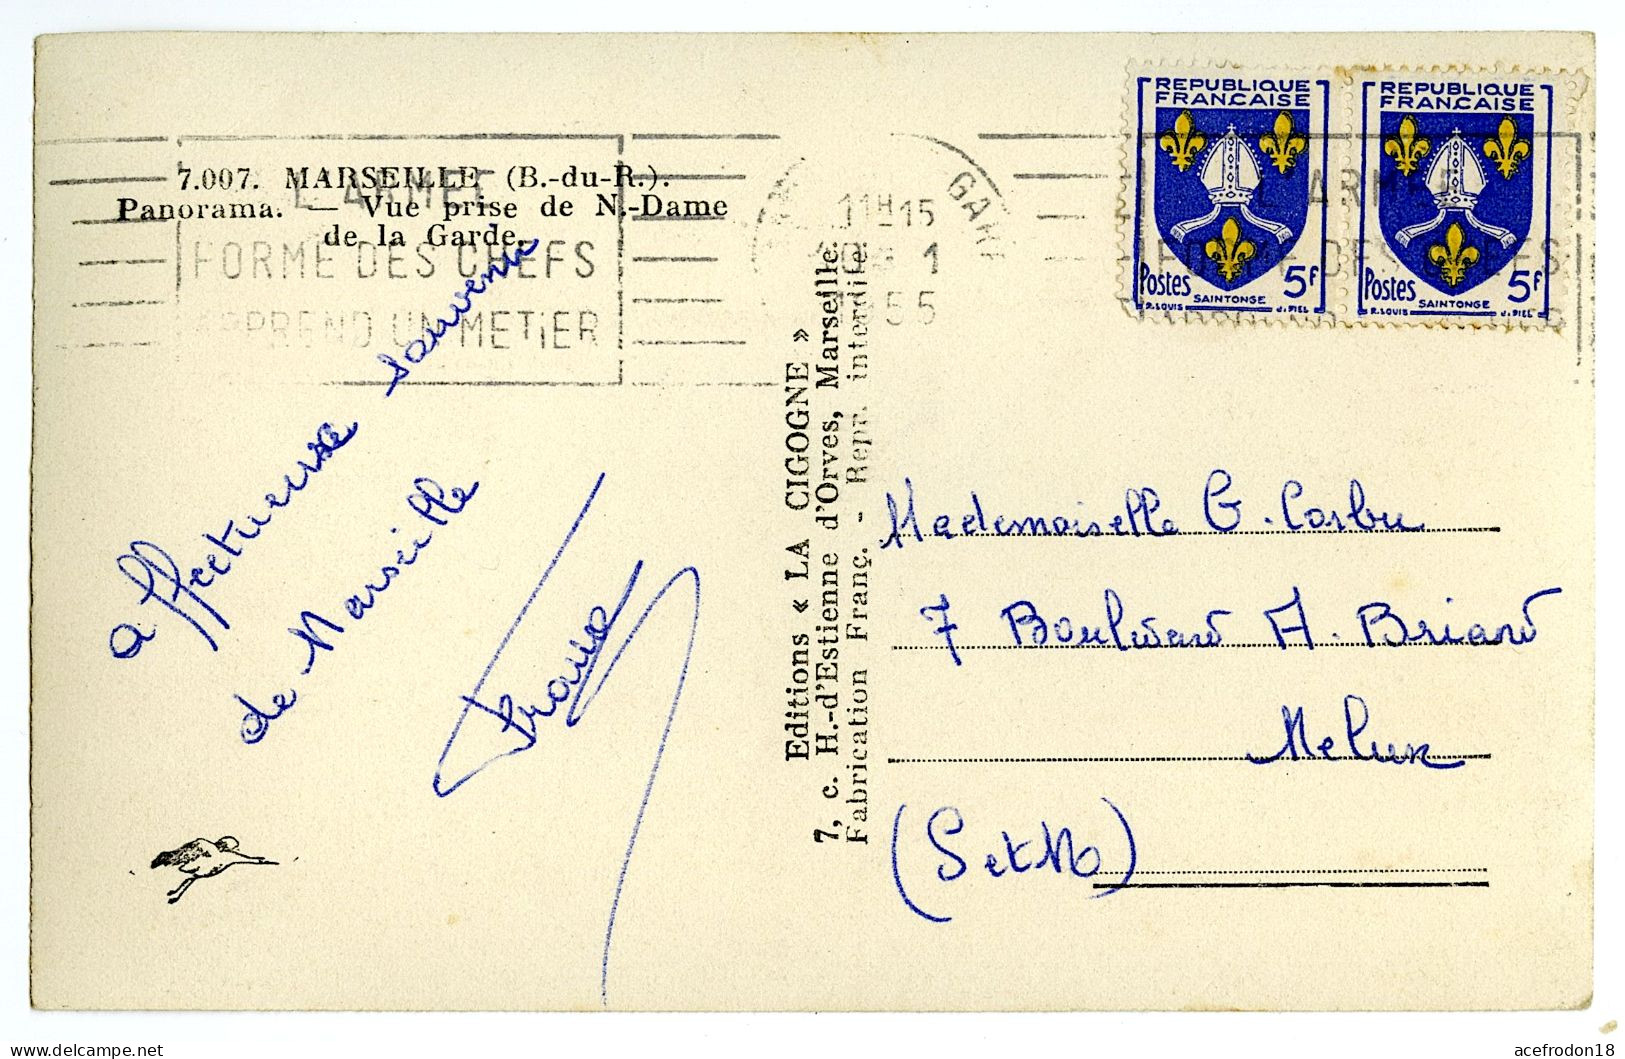 7.007. MARSEILLE (B.-du-R.).
Panorama. — Vue prise de N.-Dame
de la Garde.
L'ARMÉE
FORME DES CHEFS
APPREND UN METiER
11H15
1
1955
GARE
REPUBLIQUE
FRANCAISE
Postes 5F
SAINTONGE
R. LOUIS J. PIEL
REPUBLIQUE
FRANCAISE
Postes 5F
SAINTONGE
R. LOUIS J. PIEL
affectueux souvenir
de Marseille
Editions « LA CIGOGNE »
7, c. H.-d'Estienne d'Orves, Marseille.
Fabrication Franç. - Repr. interdite.
Mademoiselle G. Corbu
7 Boulevard A. Briand
Melun
(S et M)
acefrodon18